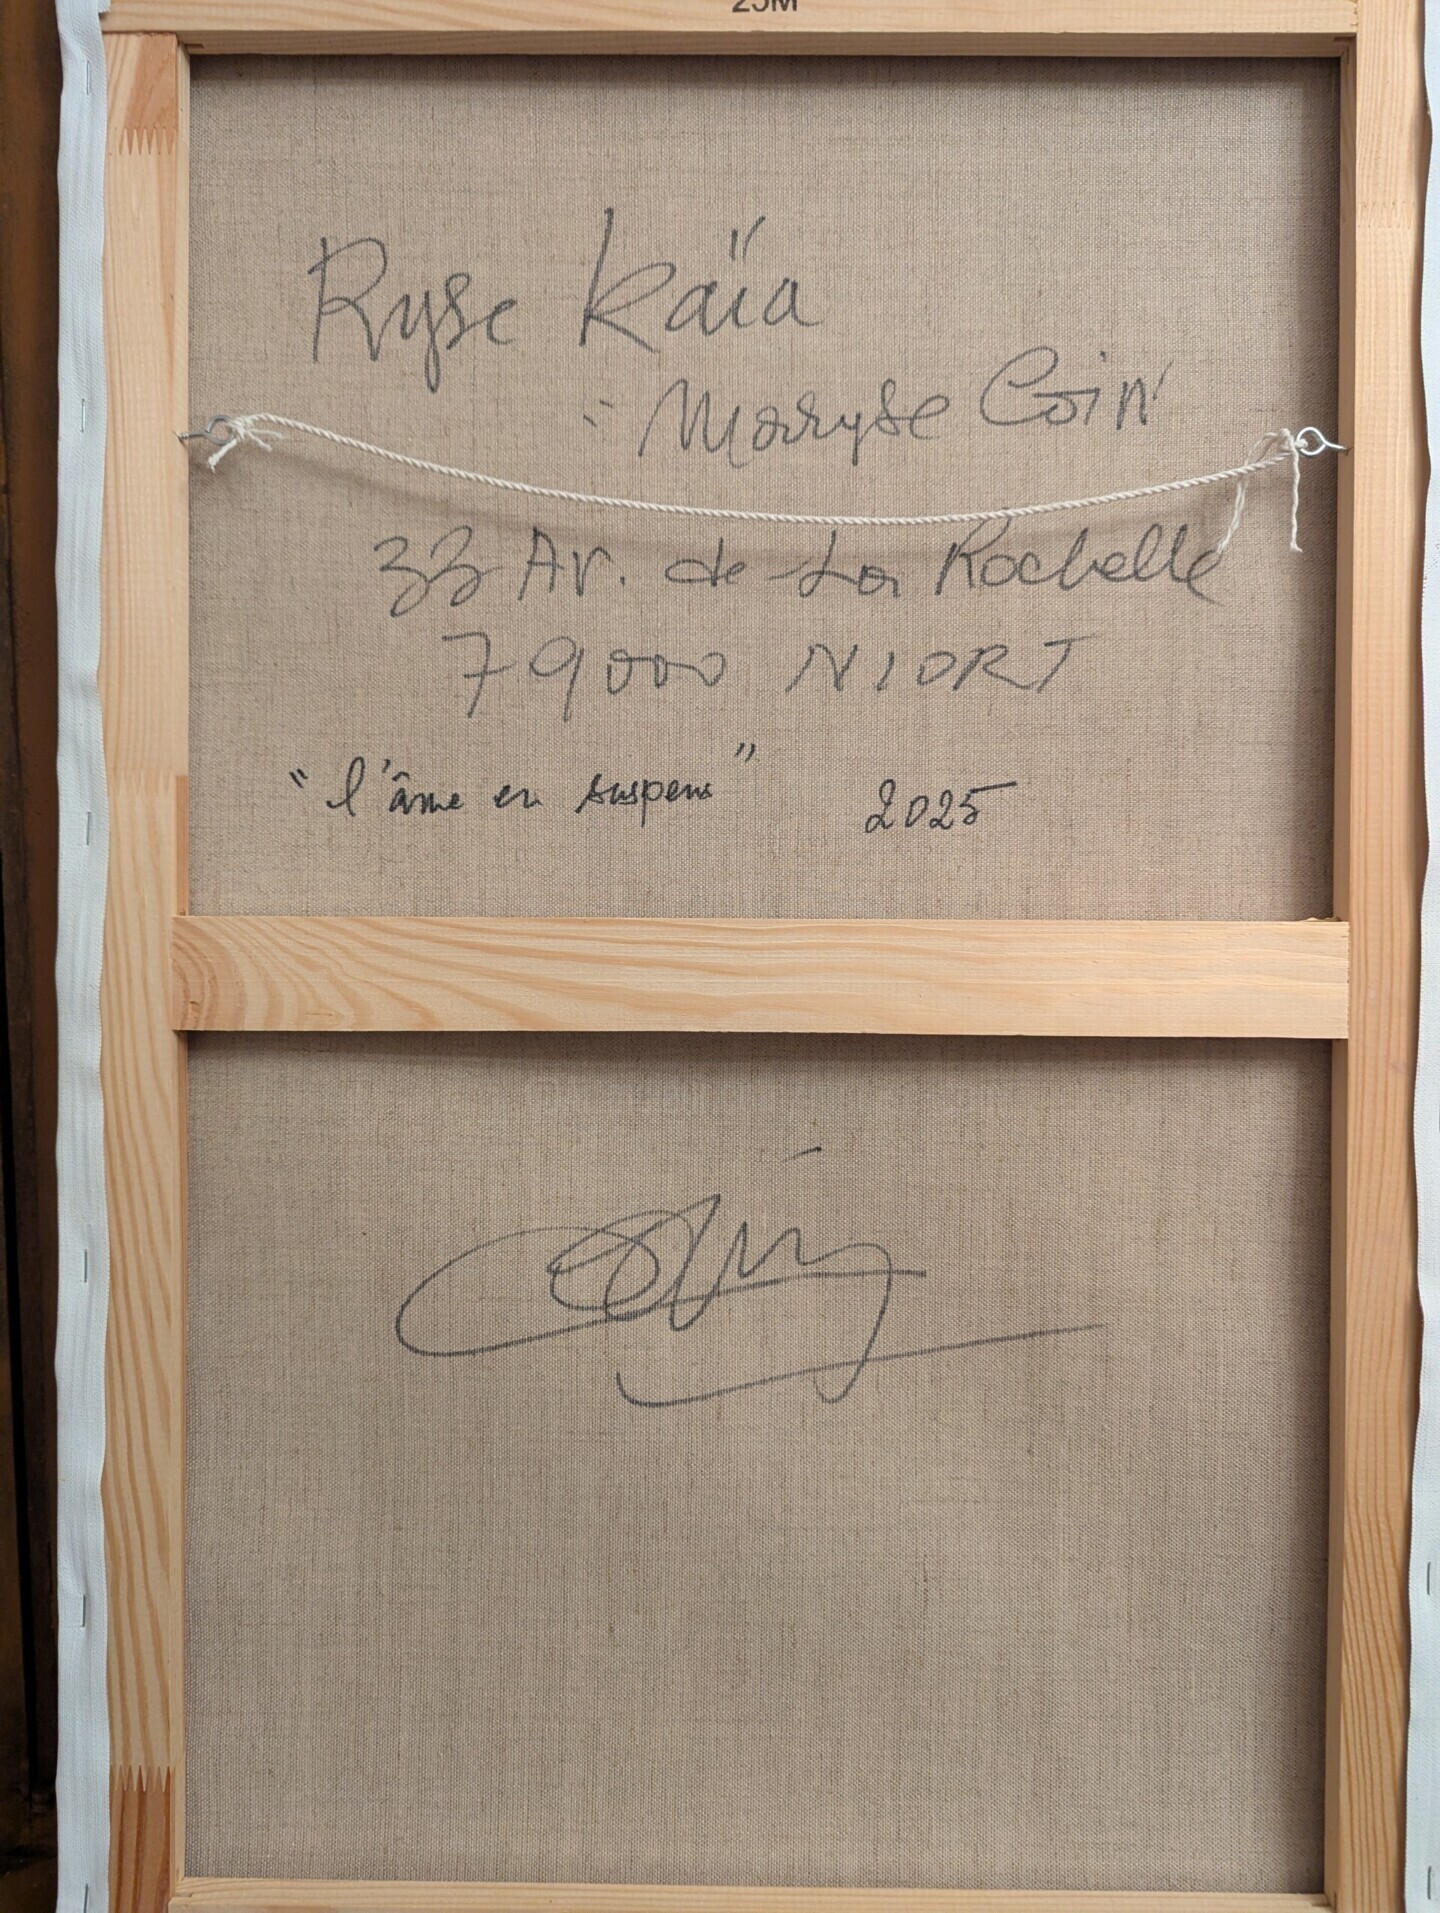 25M
Ryse Kaïa
- Maryse Coin
33 Av. de La Rochelle
79000 NIORT
"l'âme en suspens" 2025